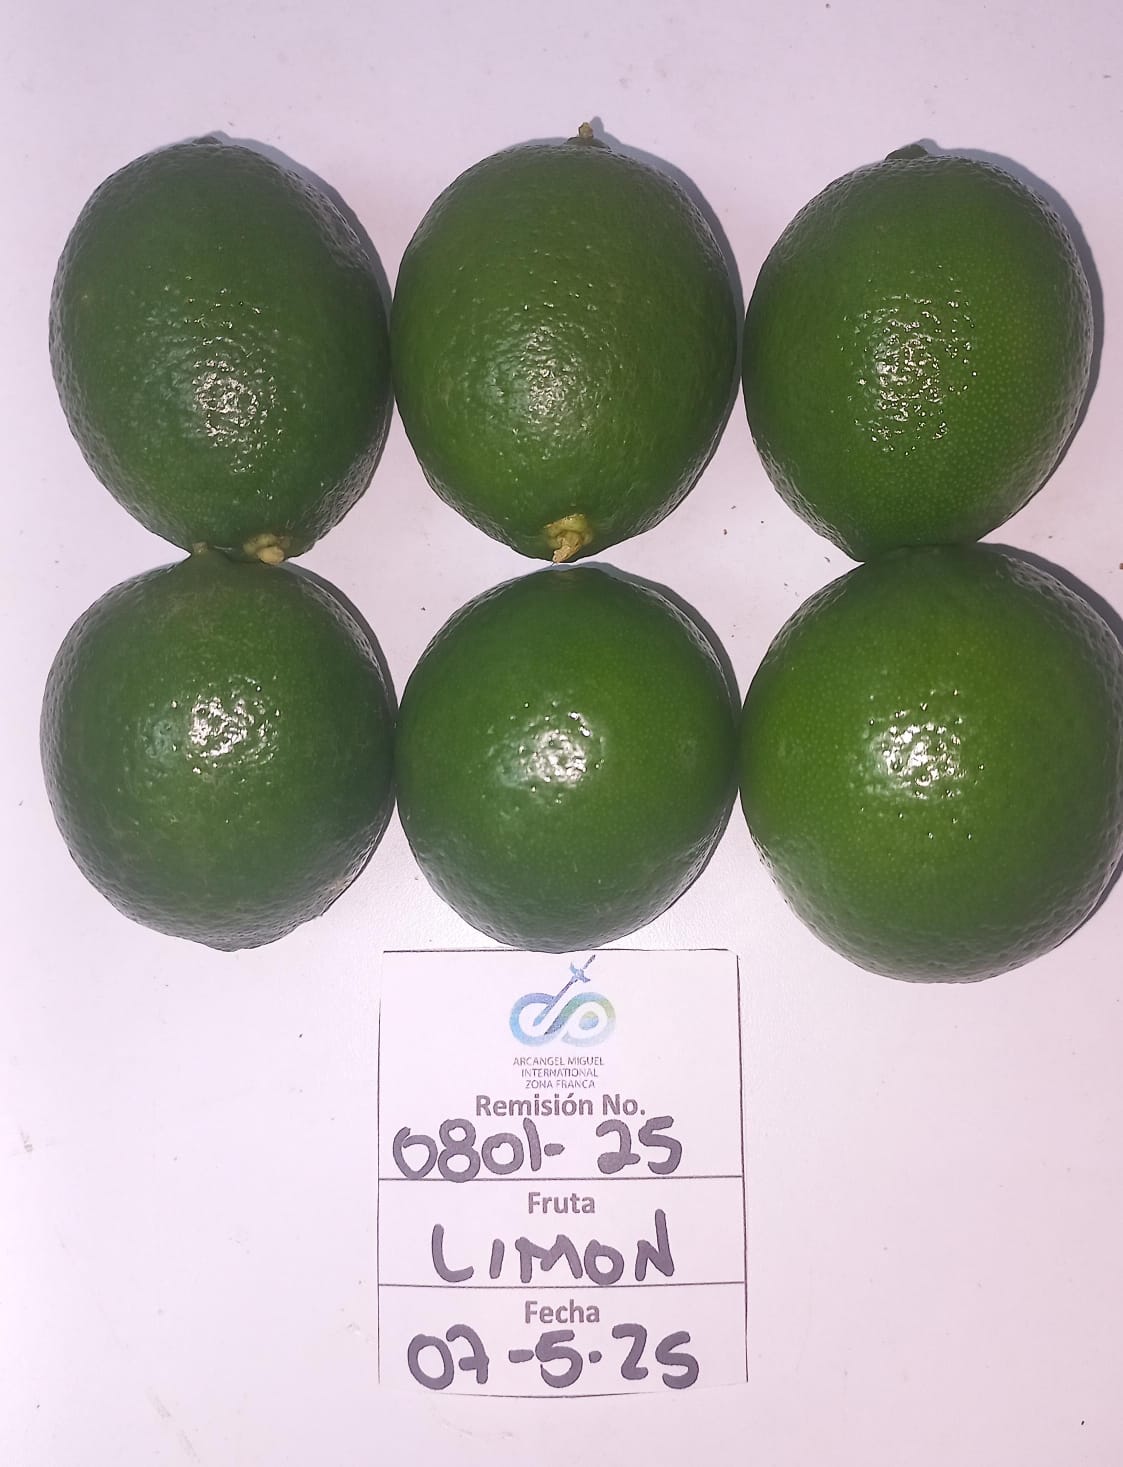 ARCANGEL MIGUEL
INTERNATIONAL
ZONA FRANCA
Remisión No.
0801-25
Fruta
LIMON
Fecha
07-5-25